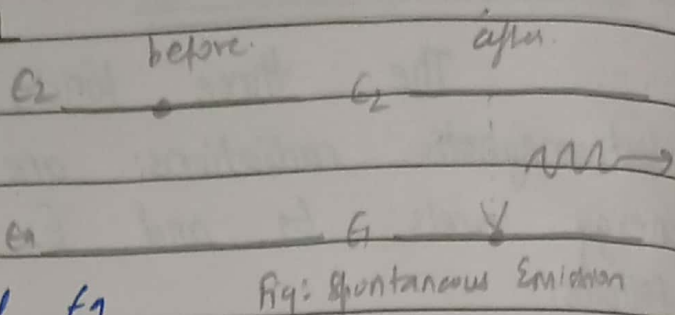 before. after.
E2 E2
E1 E1
Fig: Spontaneous Emission